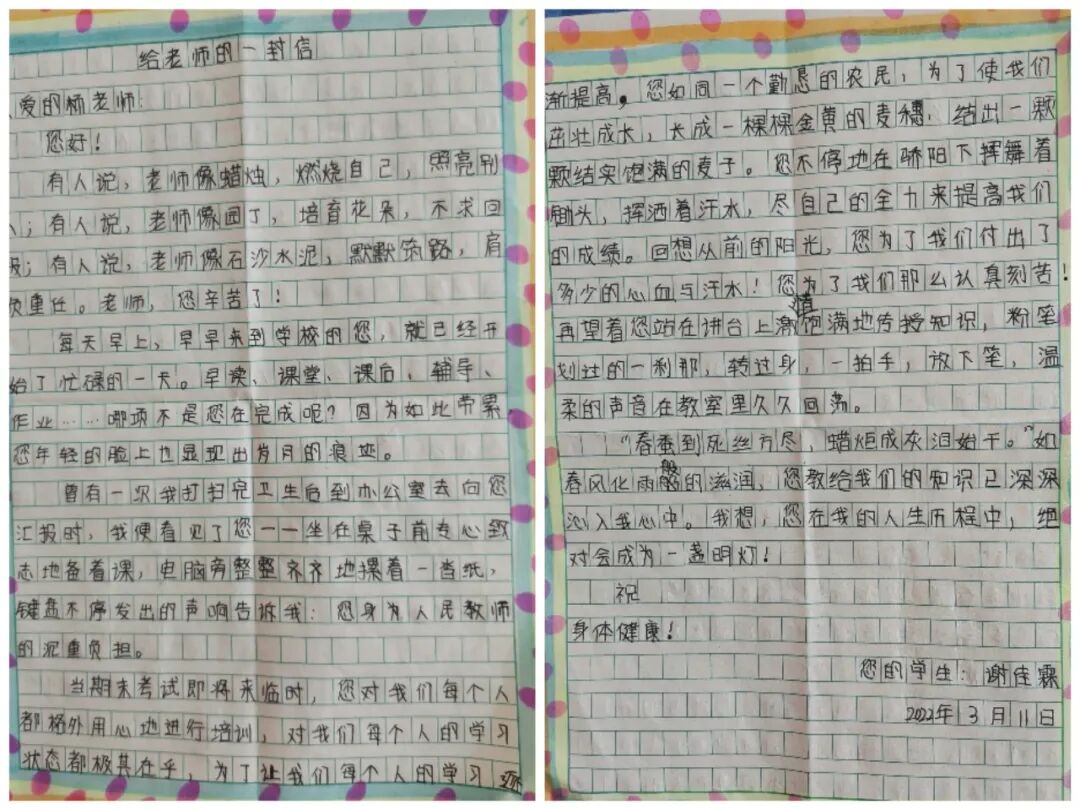 给老师的一封信
爱的杨老师:
您好!
有人说,老师像蜡烛,燃烧自己,照亮别
人;有人说,老师像园丁,培育花朵,不求回
报;有人说,老师像石沙水泥,默默筑路,肩
负重任。老师,您辛苦了!
每天早上,早早来到学校的您,就已经开
始了忙碌的一天。早读、课堂、课后、辅导、
作业……哪项不是您在完成呢?因为如此劳累,
您年轻的脸上也显现出岁月的痕迹。
曾有一次我打扫完卫生后到办公室去向您
汇报时,我便看见了您——坐在桌子前专心致
志地备着课,电脑旁整整齐齐地摆着一沓纸,
键盘不停发出的声响告诉我:您身为人民教师
的沉重负担。
当期末考试即将来临时,您对我们每个人
都格外用心地进行培训,对我们每个人的学习
状态都极其在乎,为了让我们每个人的学习逐
渐提高。您如同一个勤恳的农民,为了使我们
茁壮成长,长成一棵棵金黄的麦穗,结出一颗
颗结实饱满的麦子。您不停地在骄阳下挥舞着
锄头,挥洒着汗水,尽自己的全力来提高我们
的成绩。回想从前的阳光,您为了我们付出了
多少的心血与汗水!您为了我们那么认真刻苦!
再望着您站在讲台上激情饱满地传授知识,粉笔
划过的一刹那,转过身,一拍手,放下笔,温
柔的声音在教室里久久回荡。
“春蚕到死丝方尽,蜡炬成灰泪始干。”如
春风化雨般的滋润,您教给我们的知识已深深
沁入我心中。我想,您在我的人生历程中,绝
对会成为一盏明灯!
祝
身体健康!
您的学生:谢佳霖
2022年3月11日